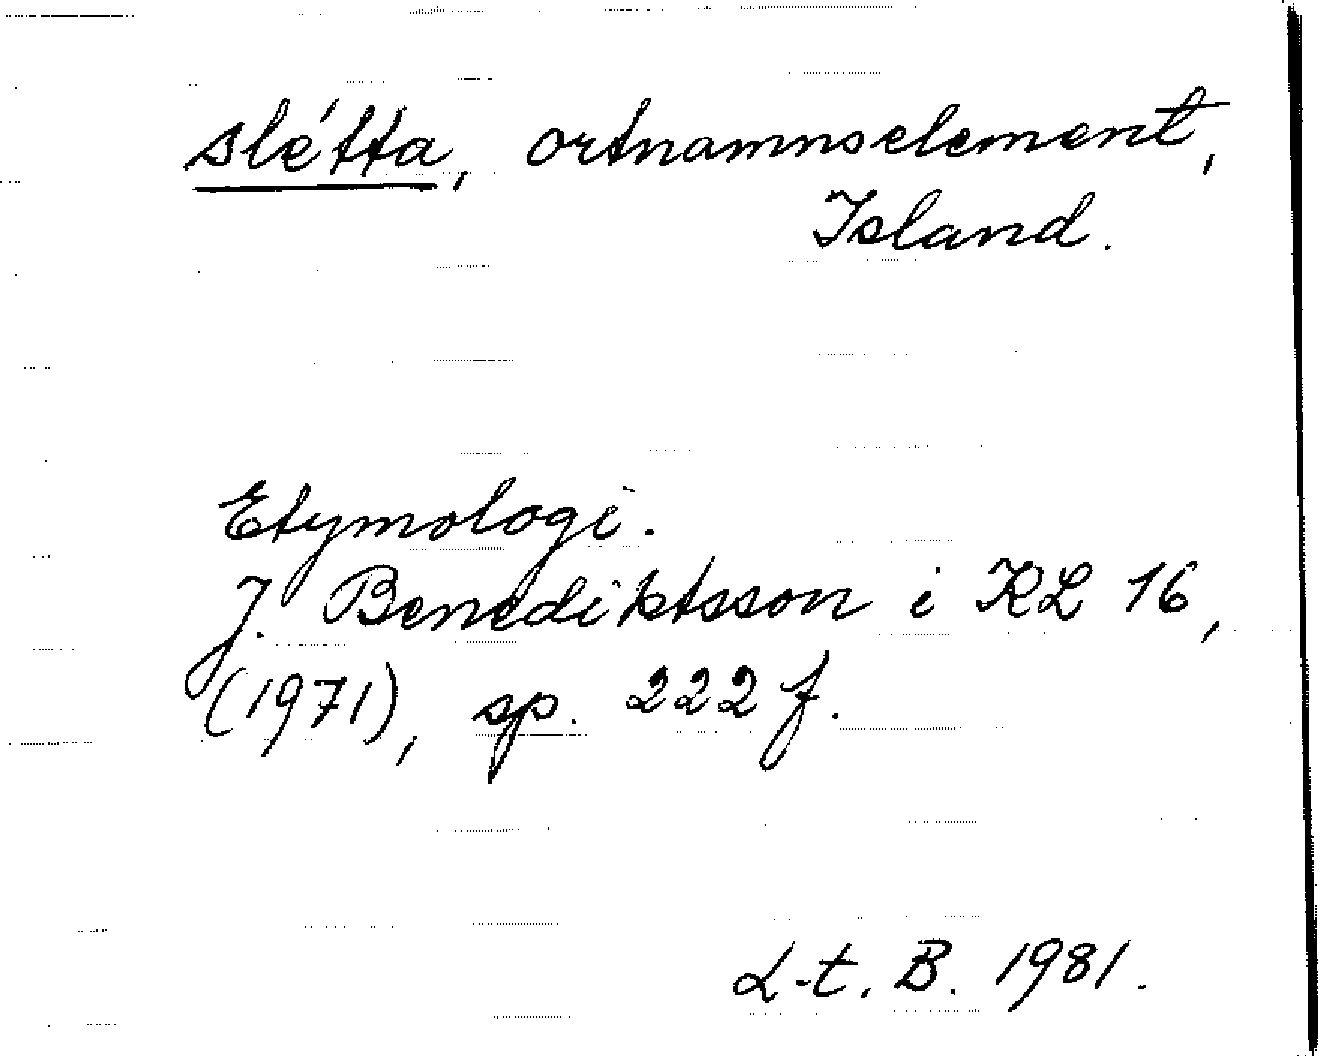 slétta, ortnamnselement,
Island.
Etymologi.
J. Benediktsson i KL 16,
(1971), sp. 222 f.
L-t. B. 1981.